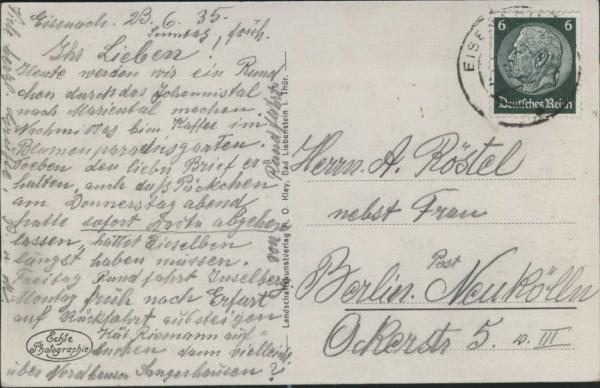 Eisenach. 23.6.35.
Sonntag, früh.
Ihr Lieben!
Heute werden wir ein Rund
chen durch das Johannistal
nach Mariental machen.
Nachmittag beim Kaffee im
Blumenparadiesgarten.
Soeben den lieben Brief er-
halten, auch das Päckchen
am Donnerstag abend
hatte sofort Karte abgehen
lassen, hättet Dieselben
längst haben müssen.
Freitag Rundfahrt Inselberg
Montag früh nach Erfurt
auf Rückfahrt aussteigen
auf-
suchen dann vielleicht
über Nordhausen Sangerhausen?
Echte
Photographie
Landschaftskunstverlag R. O. Kley, Bad Liebenstein i. Thür.
von Rundfahrt
6 6
Deutsches Reich
EISE
Herrn A. Röstel
nebst Frau
Post
Berlin. Neukölln
Ockerstr 5. v. III